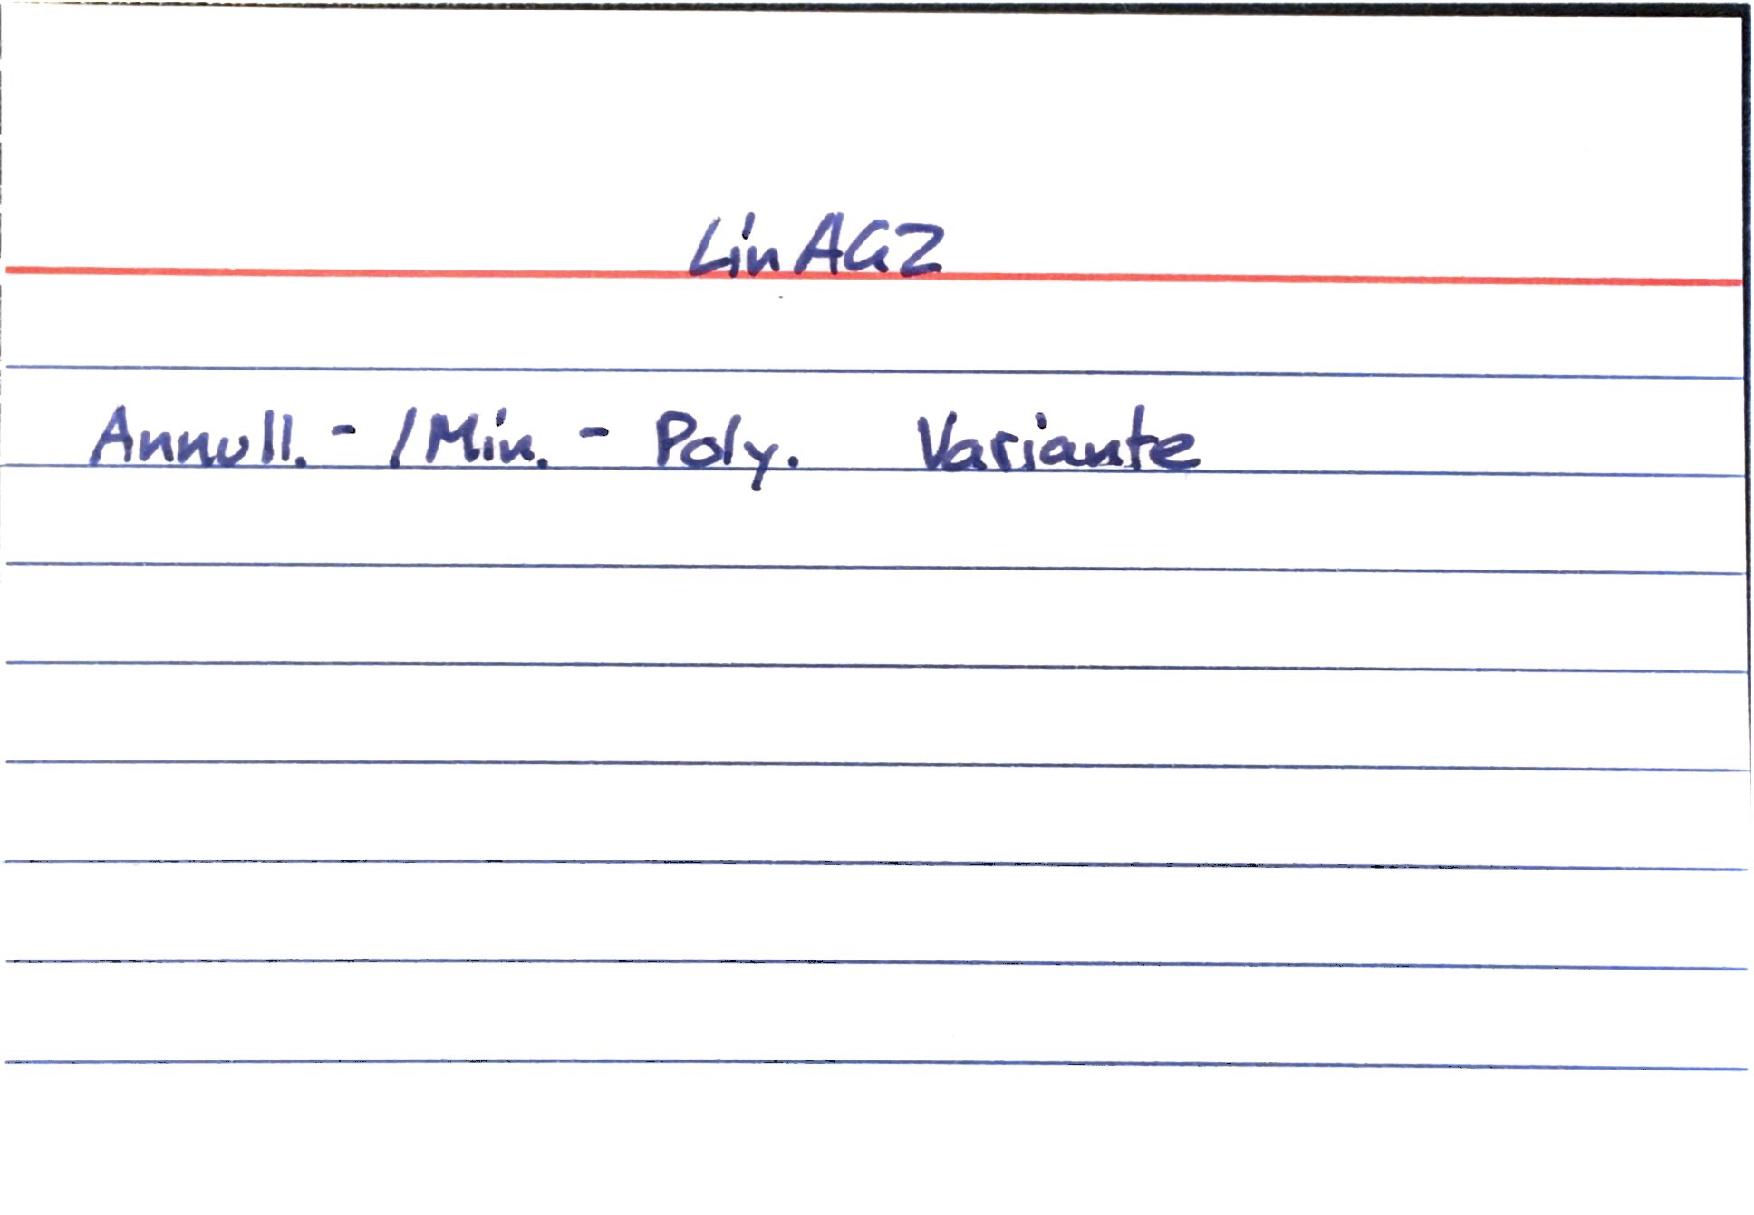 LinAG2
Annull.-/Min.-Poly. Variante